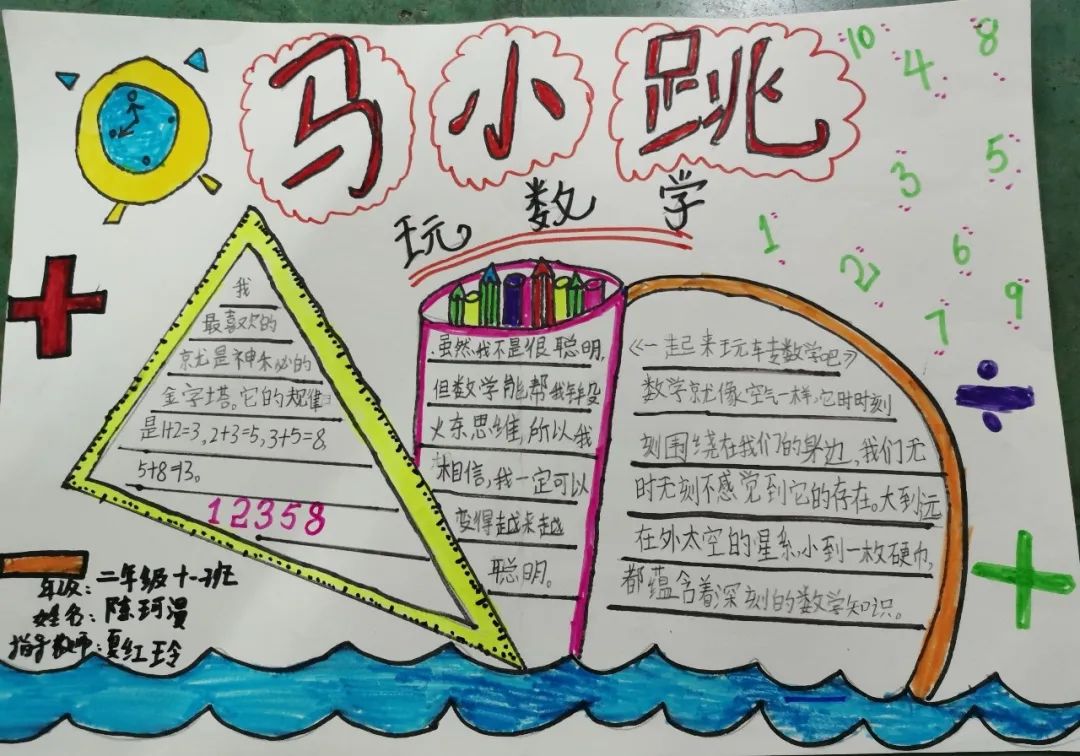 马小跳
玩数学
10
4
8
3
5
1
2
6
7
9
我
最喜欢的
就是神秘的
金字塔。它的规律
是1+2=3,2+3=5,3+5=8,
5+8=13。
12358
虽然我不是很聪明,
但数学能帮我锻
火东思维,所以我
相信,我一定可以
变得越来越
聪明。
《一起来玩车专数学吧》
数学就像空气一样,它时时刻
刻围绕在我们的身边,我们无
时无刻不感觉到它的存在。大到远
在外太空的星系,小到一枚硬币,
都蕴含着深刻的数学知识。
年级:二年级十一班
姓名:陈珂漫
指导教师:夏红玲